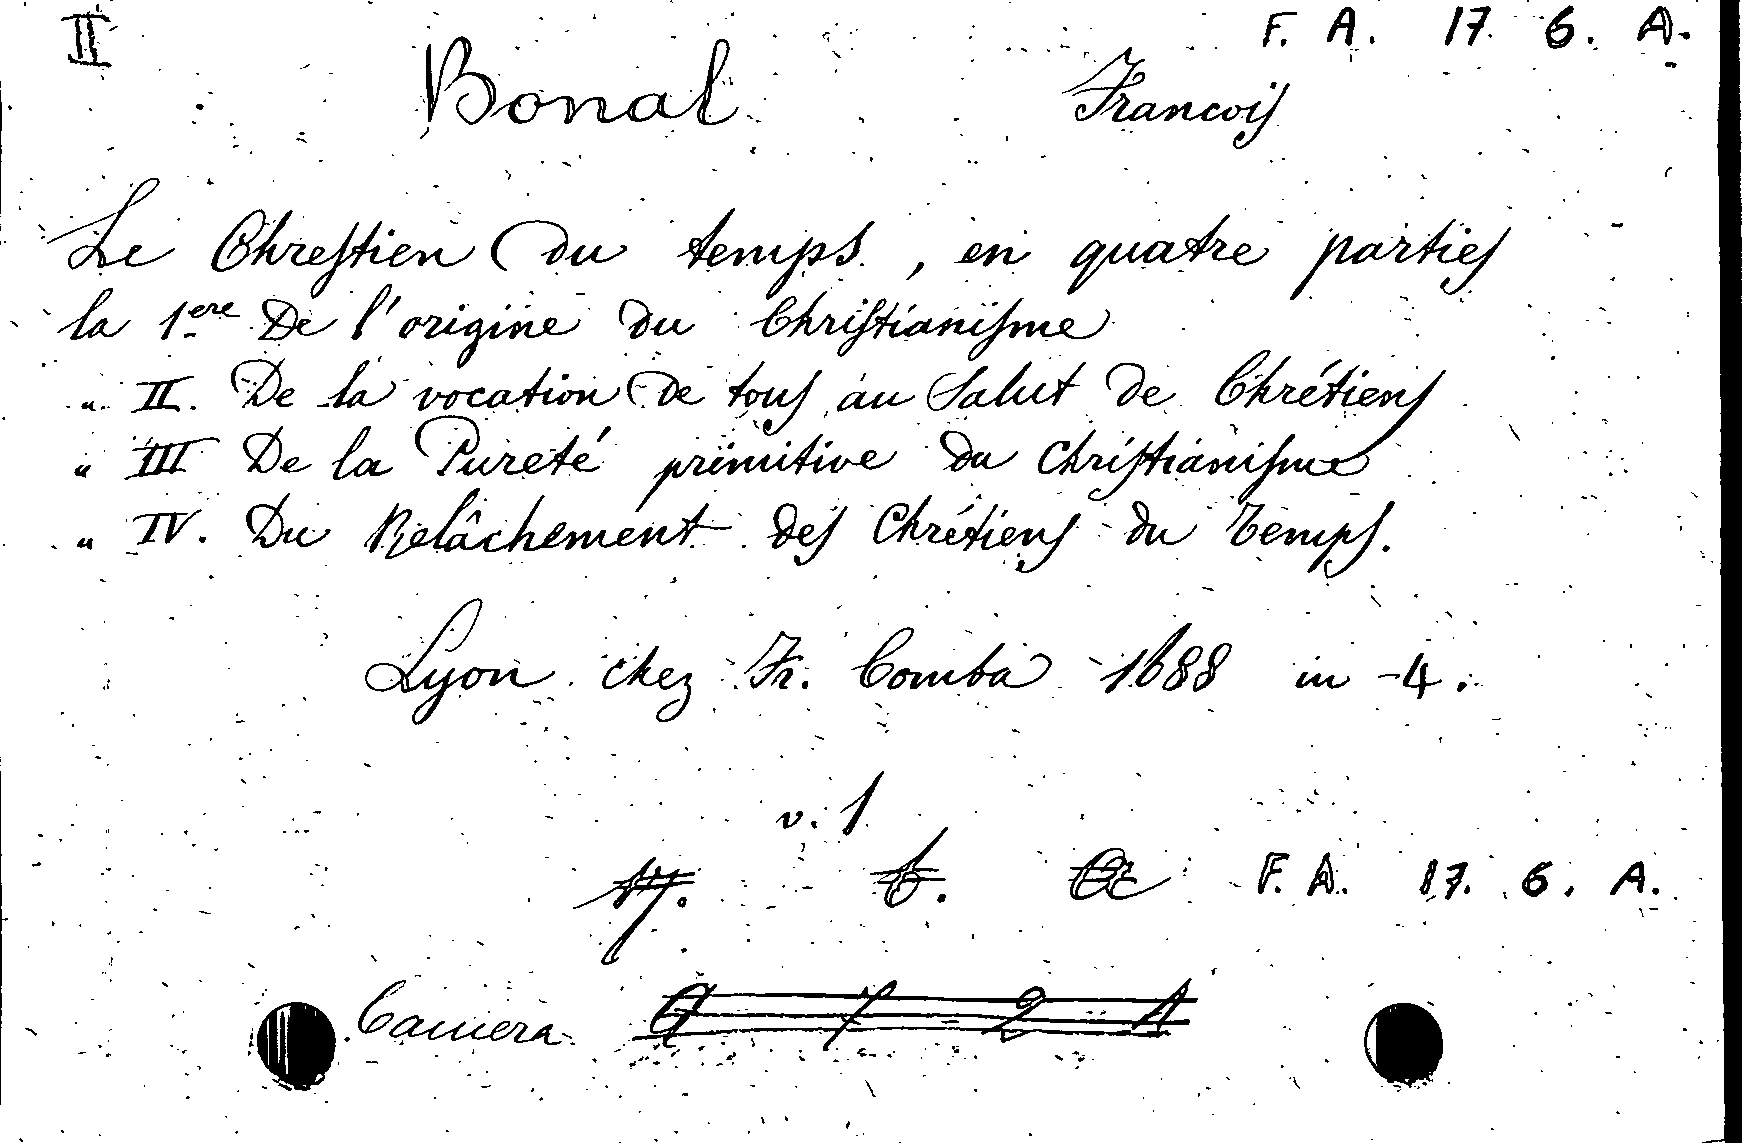 II F. A. 17. 6. A.
Bonal Francois
Le Chrestien du temps, en quatre parties
la 1ere De l'origine du Christianisme
" II. De la vocation de tous au Salut de Chrétiens
" III De la Pureté primitive du Christianisme
" IV. Du Relâchement des Chrétiens du Temps.
Lyon chez Fr. Comba 1688 in -4.
v. 1
17. 6. F. A. 17. 6. A.
Camera 2 A